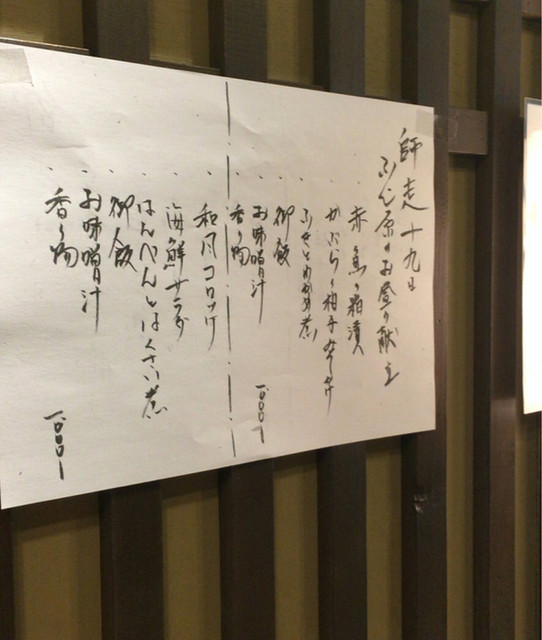 師走十九日
ふじ原のお昼の献立
赤魚の粕漬
かぶらの柚子みそかけ
ふきとわかめ煮
御飯
お味噌汁
香の物
一、〇〇〇
和風コロッケ
海鮮サラダ
はんぺんとはくさい煮
御飯
お味噌汁
香の物
一、〇〇〇